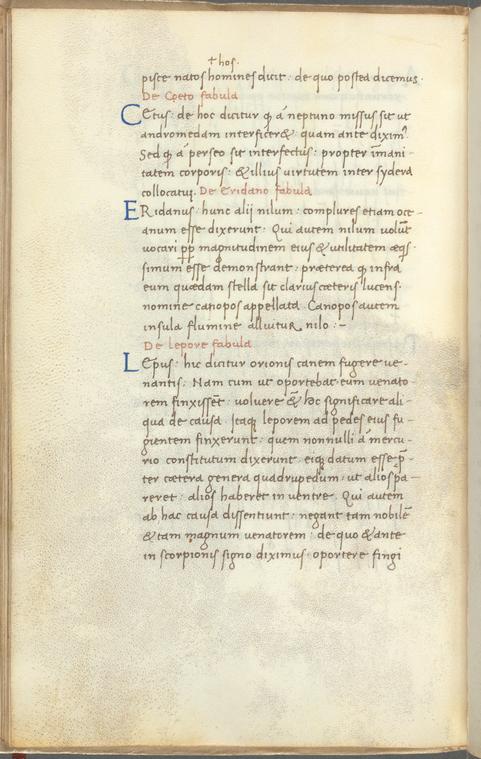 † hos.
pisce natos homines dicit : de quo postea dicemus.
De Coeto fabula
CEtus: de hoc dicitur ꝙ á neptuno missus sit ut
andromedam interficeret & quam ante diximꝰ
Sed ꝙ á perseo sit interfectus: propter īmani-
tatem corporis: & illius virtutem inter sydera
collocatur. De Eridano fabula
ERidanus: hunc alij nilum: complures etiam oce-
anum esse dixerunt: Qui autem nilum volūt
vocari pp̄ magnitudinem eius & utilitatem æqs-
simum esse demonstrant: præterea ꝙ infra
eum quædam stella sit clarius cæteris lucens:
nomine canopos appellata. Canopos autem
insula flumine alluitur nilo : ~
De lepore fabula
LEpus: hic dicitur orionis canem fugere ve-
nantis. Nam cum ut oportebat eum venato-
rem finxissēt: voluere & hoc significare ali-
qua de causa. Itaqꝫ leporem ad pedes eius fu-
gientem finxerunt: quem nonnulli á mercu-
rio constitutum dixerunt: eiqꝫ datum esse p̄-
ter cætera genera quadrupedum: ut alios pa-
reret: alios haberet in ventre. Qui autem
ab hac causa dissentiunt: negant tam nobilē
& tam magnum venatorem: de quo & ante
in scorpionis signo diximus: oportere fingi